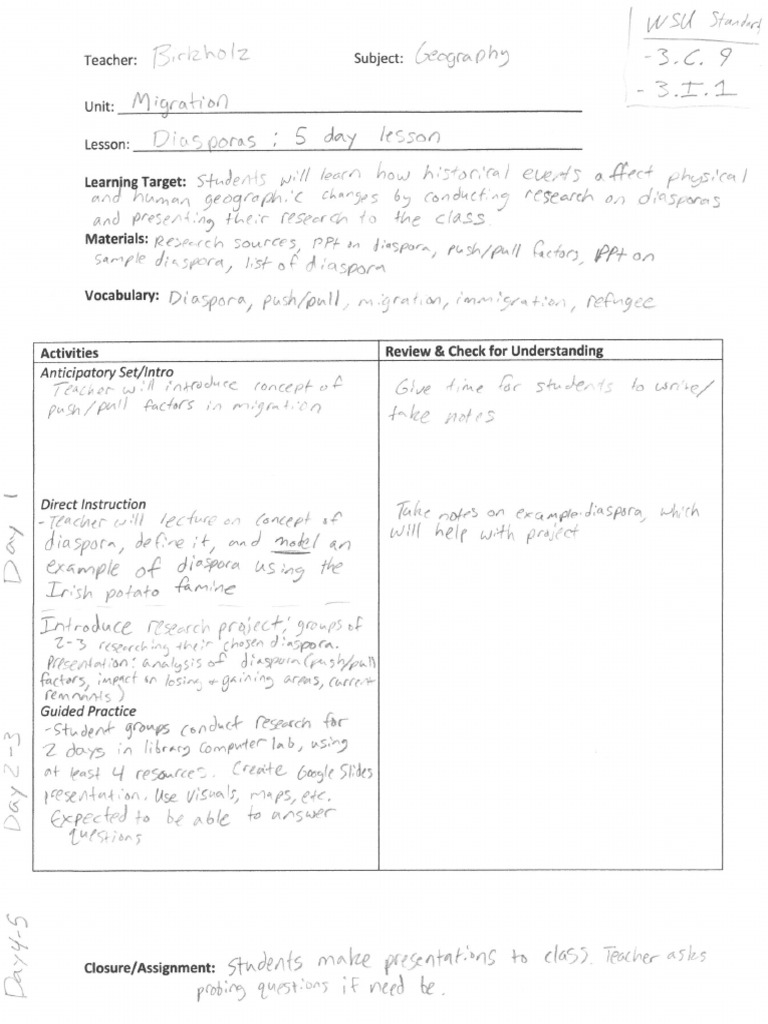 WSU Standard
- 3.C.9
- 3.I.1
Teacher: Birkholz Subject: Geography
Unit: Migration
Lesson: Diasporas : 5 day lesson
Learning Target: Students will learn how historical events affect physical
and human geographic changes by conducting research on diasporas
and presenting their research to the class.
Materials: Research sources, PPt on diaspora, push/pull factors, PPt on
sample diaspora, list of diaspora
Vocabulary: Diaspora, push/pull, migration, immigration, refugee
Activities
Review & Check for Understanding
Anticipatory Set/Intro
Teacher will introduce concept of
push/pull factors in migration
Give time for students to write/
take notes
Day 1
Direct Instruction
- Teacher will lecture on concept of
diaspora, define it, and model an
example of diaspora using the
Irish potato famine
Take notes on example diaspora, which
will help with project
Introduce research project; groups of
2-3 researching their chosen diaspora.
Presentation: analysis of diaspora (push/pull
factors, impact on losing + gaining areas, current
remnants)
Day 2-3
Guided Practice
- Student groups conduct research for
2 days in library computer lab, using
at least 4 resources. Create Google Slides
presentation. Use visuals, maps, etc.
Expected to be able to answer
questions
Day 4-5
Closure/Assignment: Students make presentations to class. Teacher asks
probing questions if need be.